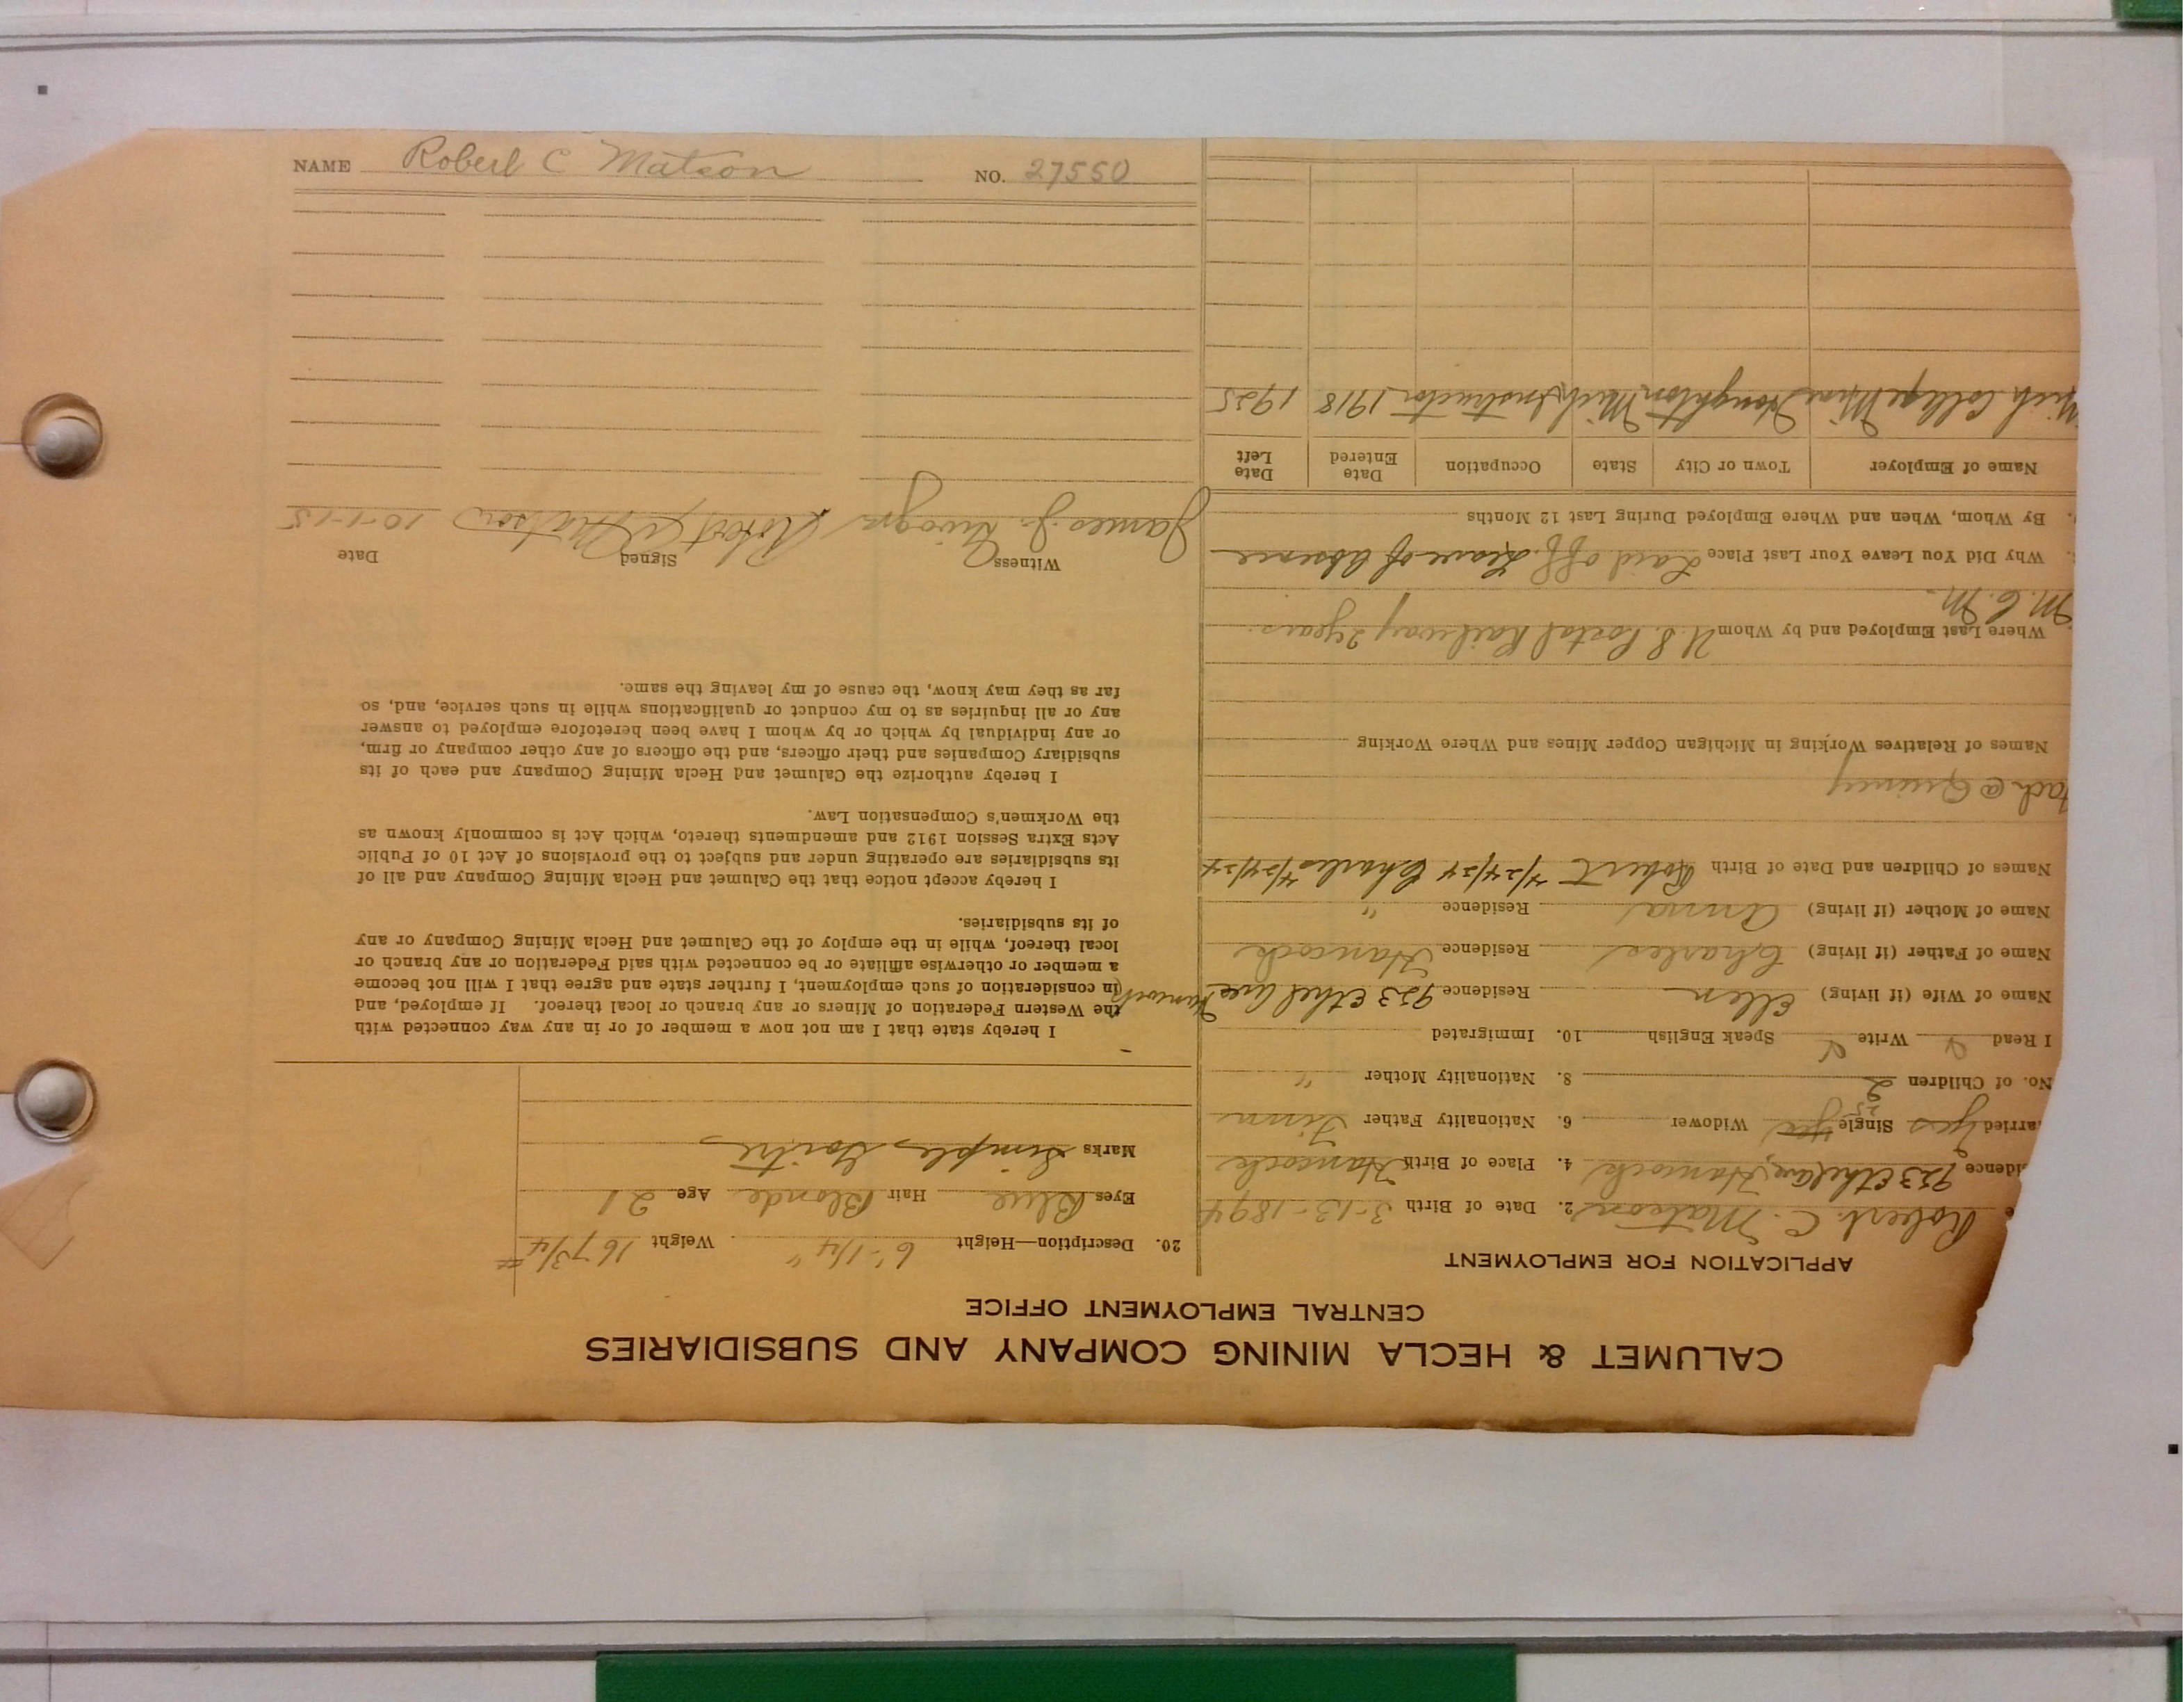 CALUMET & HECLA MINING COMPANY AND SUBSIDIARIES
CENTRAL EMPLOYMENT OFFICE
APPLICATION FOR EMPLOYMENT
Robert. C. Matson 2. Date of Birth 3-13-1894
idence 923 Ethel ave, Hancock 4. Place of Birth Hancock
arried yes Single yes Widower 6. Nationality Father Finn
No. of Children 2 8. Nationality Mother "
I Read Write Speak English 10. Immigrated
Name of Wife (if living) Ellen Residence 923 Ethel ave Hancock
Name of Father (if living) Charles Residence Hancock
Name of Mother (if living) Anna Residence "
Names of Children and Date of Birth Robert 4/24/24 Charles 4/24/24
@ Quincy
Names of Relatives Working in Michigan Copper Mines and Where Working
Where Last Employed and by Whom U.S. Postal Railway 2 years
M.C.M.
Why Did You Leave Your Last Place Laid off. Leave of absence
By Whom, When and Where Employed During Last 12 Months
Name of Employer Town or City State Occupation Date Entered Date Left
Mich. College Mine Houghton Mich. Instructor 1918 1925
20. Description—Height 6'-1 1/4" Weight 167 3/4 #
Eyes Blue Hair Blonde Age 21
Marks Simple Goitre
I hereby state that I am not now a member of or in any way connected with
the Western Federation of Miners or any branch or local thereof. If employed, and
in consideration of such employment, I further state and agree that I will not become
a member or otherwise affiliate or be connected with said Federation or any branch or
local thereof, while in the employ of the Calumet and Hecla Mining Company or any
of its subsidiaries.
I hereby accept notice that the Calumet and Hecla Mining Company and all of
its subsidiaries are operating under and subject to the provisions of Act 10 of Public
Acts Extra Session 1912 and amendments thereto, which Act is commonly known as
the Workmen's Compensation Law.
I hereby authorize the Calumet and Hecla Mining Company and each of its
subsidiary Companies and their officers, and the officers of any other company or firm,
or any individual by which or by whom I have been heretofore employed to answer
any or all inquiries as to my conduct or qualifications while in such service, and, so
far as they may know, the cause of my leaving the same.
Witness Signed Date
James J. Robert C Matson 10-1-15
NAME Robert C Matson NO. 27550